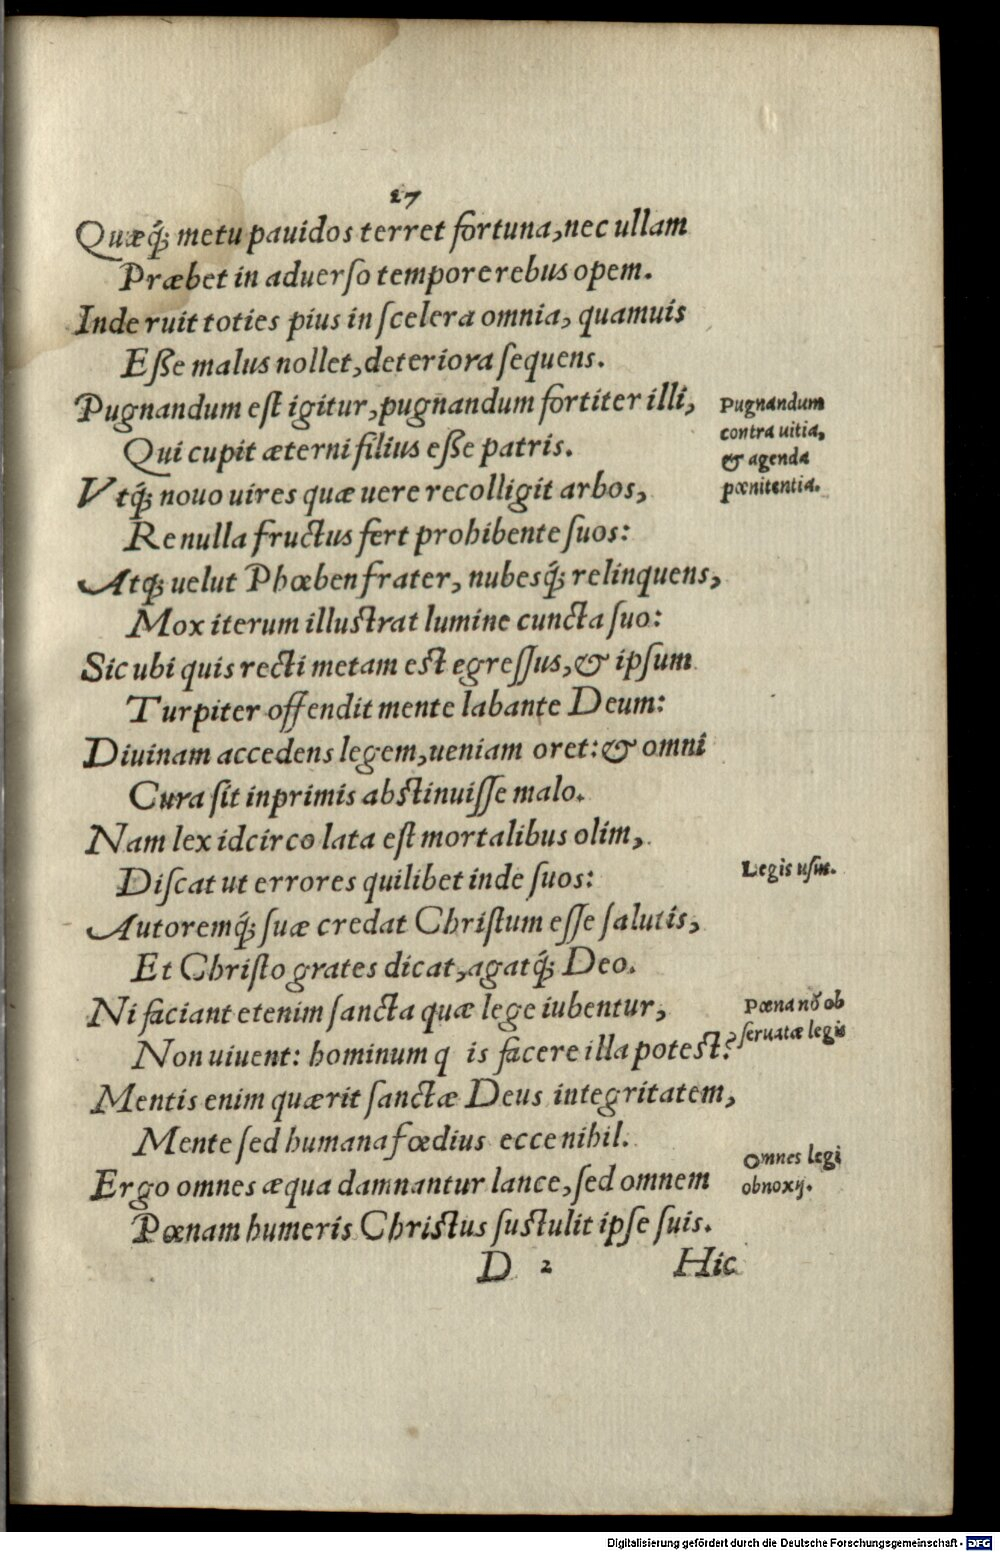 27
Quæq́; metu pauidos terret fortuna, nec ullam
Præbet in aduerſo tempore rebus opem.
Inde ruit toties pius in ſcelera omnia, quamuis
Eſſe malus nollet, deteriora ſequens.
Pugnandum eſt igitur, pugnandum fortiter illi,
Qui cupit æterni filius eſſe patris.
Vtq́; nouo uires quæ uere recolligit arbos,
Re nulla fructus fert prohibente ſuos:
Atq; uelut Phœben frater, nubesq́; relinquens,
Mox iterum illuſtrat lumine cuncta ſuo:
Sic ubi quis recti metam eſt egreſſus, & ipſum
Turpiter offendit mente labante Deum:
Diuinam accedens legem, ueniam oret: & omni
Cura ſit inprimis abſtinuiſſe malo.
Nam lex idcirco lata eſt mortalibus olim,
Diſcat ut errores quilibet inde ſuos:
Autoremq́; ſuæ credat Chriſtum eſſe salutis,
Et Chriſto grates dicat, agatq́; Deo.
Ni faciant etenim ſancta quæ lege iubentur,
Non uiuent: hominum q is facere illa poteſt?
Mentis enim quærit ſanctæ Deus integritatem,
Mente ſed humana fœdius ecce nihil.
Ergo omnes æqua damnantur lance, ſed omnem
Pœnam humeris Chriſtus ſuſtulit ipſe ſuis.
D 2 Hic
Pugnandum
contra uitia,
& agenda
pœnitentia.
Legis uſus.
Pœna nō ob
ſeruatæ legis
Omnes legi
obnoxij.
Digitalisierung gefördert durch die Deutsche Forschungsgemeinschaft - DFG